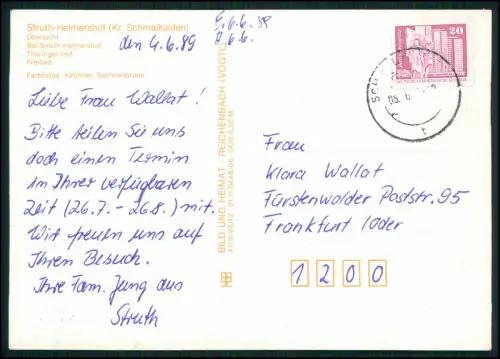 Struth-Helmershof (Kr. Schmalkalden)
Übersicht
Bei Struth-Helmershof
Thüringer Hof
Freibad
Farbfotos: Kirchner, Sachsenbrunn
den 4.6.89
E. 6.6.89
6.6.
Liebe Frau Wallat!
Bitte teilen Sie uns
doch einen Termin
in Ihrer verfügbaren
Zeit (26.7. - 26.8.) mit.
Wir freuen uns auf
Ihren Besuch.
Ihre Fam. Jung aus
Struth
BILD UND HEIMAT · REICHENBACH (VOGTL)
20
Frau
Klara Wallat
Fürstenwalder Poststr. 95
Frankfurt /Oder
1200